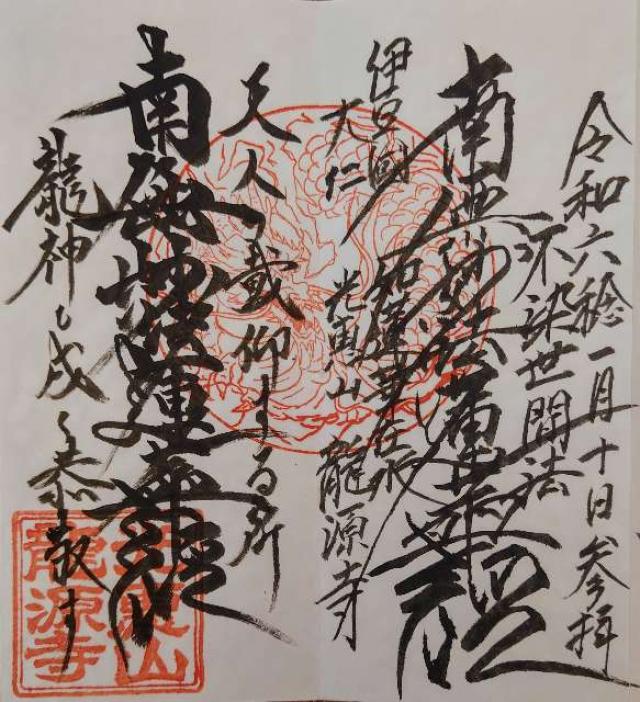 令和六稔一月十日参拝
不染世間法
南無妙法蓮華経
伊豆國
大仁
光恵山 龍源寺
天人の戴仰する所
南無妙法蓮華経
龍神も咸く恭敬す
光恵山
龍源寺